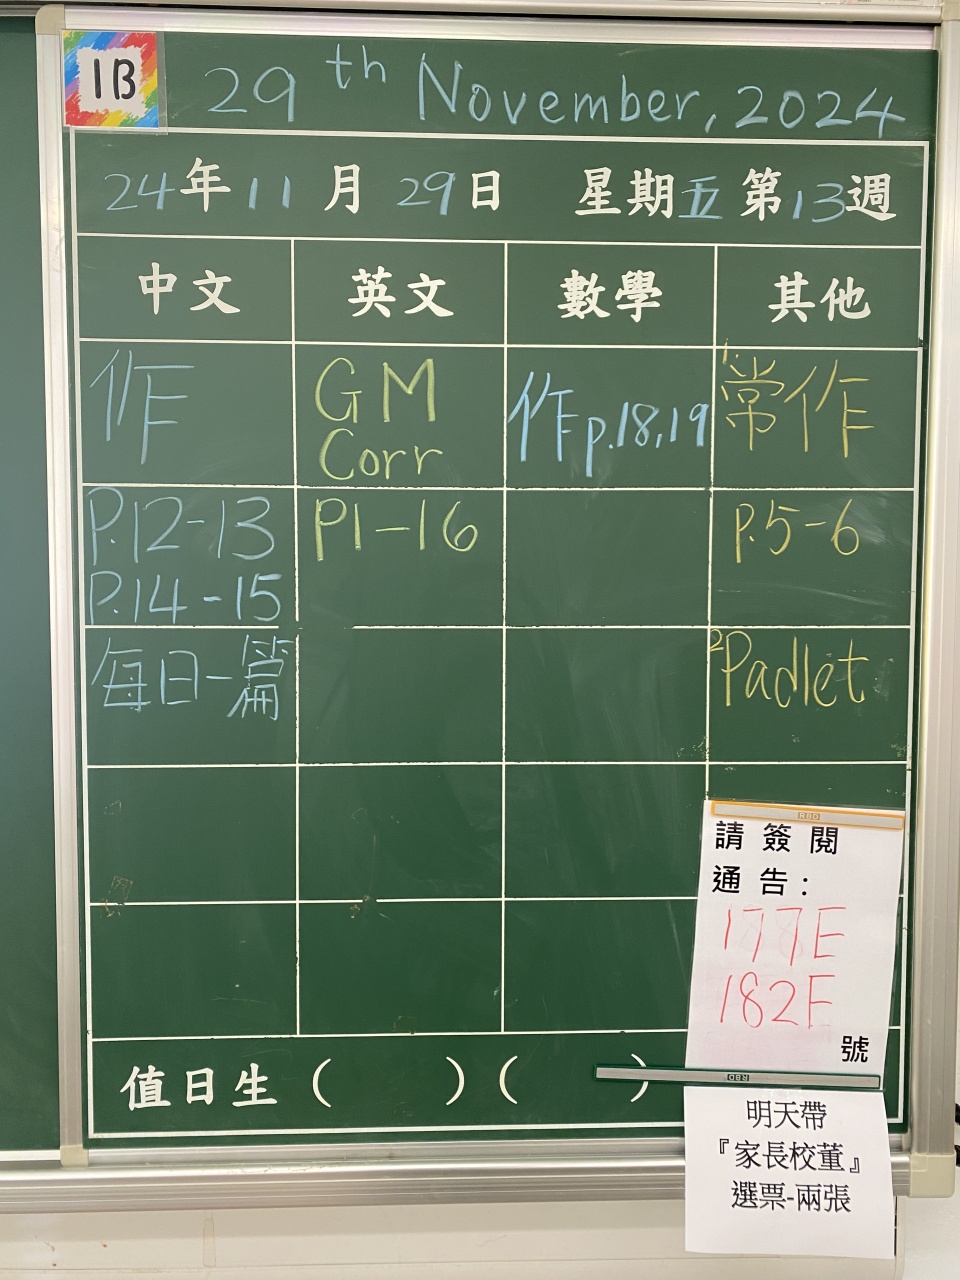 1B
29th November, 2024
24年11月29日 星期五 第13週
中文 英文 數學 其他
作
P.12-13
P.14-15
每日一篇
GM
Corr
P1-16
作p.18,19
1.常作
P.5-6
2Padlet
值日生 ( ) ( )
請簽閱
通告:
177E
182E
號
明天帶
『家長校董』
選票-兩張